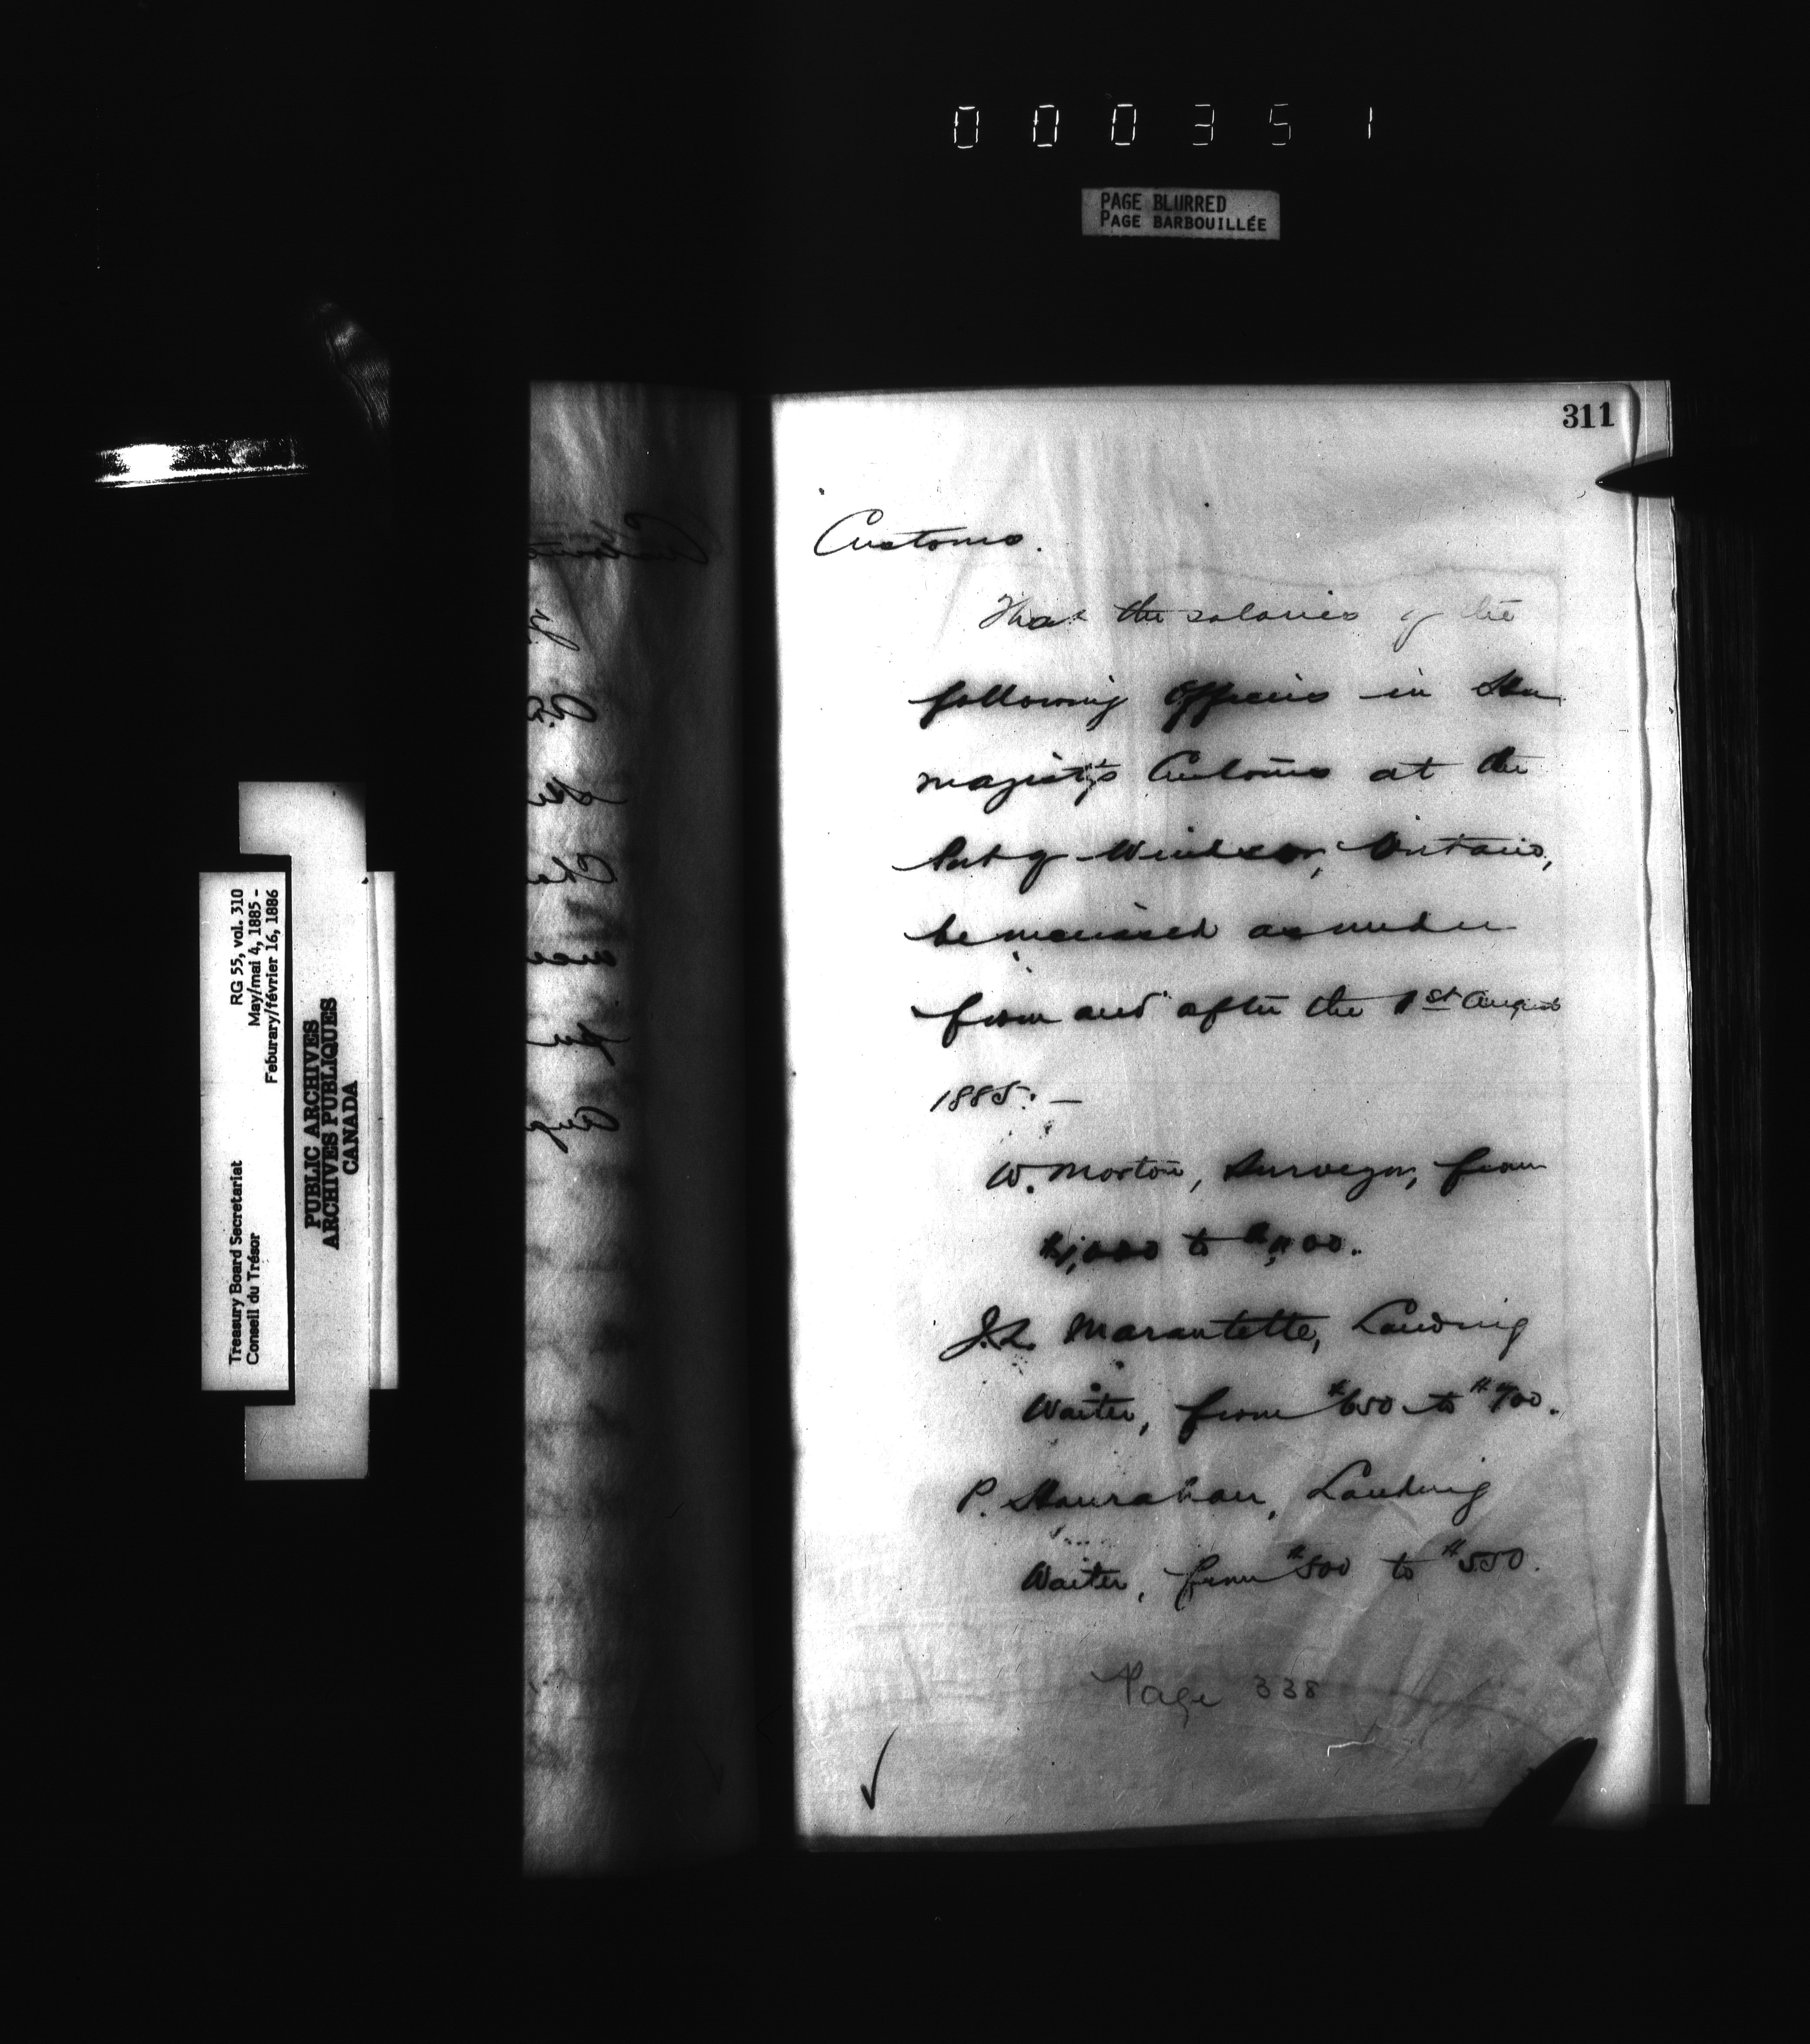 000351
PAGE BLURRED
PAGE BARBOUILLÉE
311
Customs.
That the salaries of the
following Officers in Her
Majesty's Customs at the
Port of Windsor, Ontario,
be increased as under
from and after the 1st August
1885: —
W. Morton, Surveyor, from
$1,000 to $1,100.
J.L. Marantette, Landing
Waiter, from $650 to $700.
P. Hanrahan, Landing
Waiter, from $500 to $550.
Page 338
RG 55, vol. 310
May/mai 4, 1885 -
Feburary/février 16, 1886
Treasury Board Secretariat
Conseil du Trésor
PUBLIC ARCHIVES
ARCHIVES PUBLIQUES
CANADA